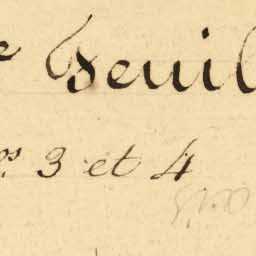 e feuil
os. 3 et 4